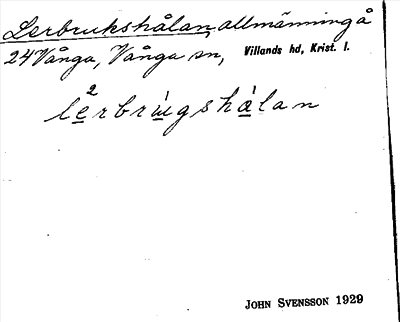 Lerbrukshålan, allmänning å
24 Vånga, Vånga sn, Villands hd, Krist. l.
2
lerbrúgshàlan
JOHN SVENSSON 1929